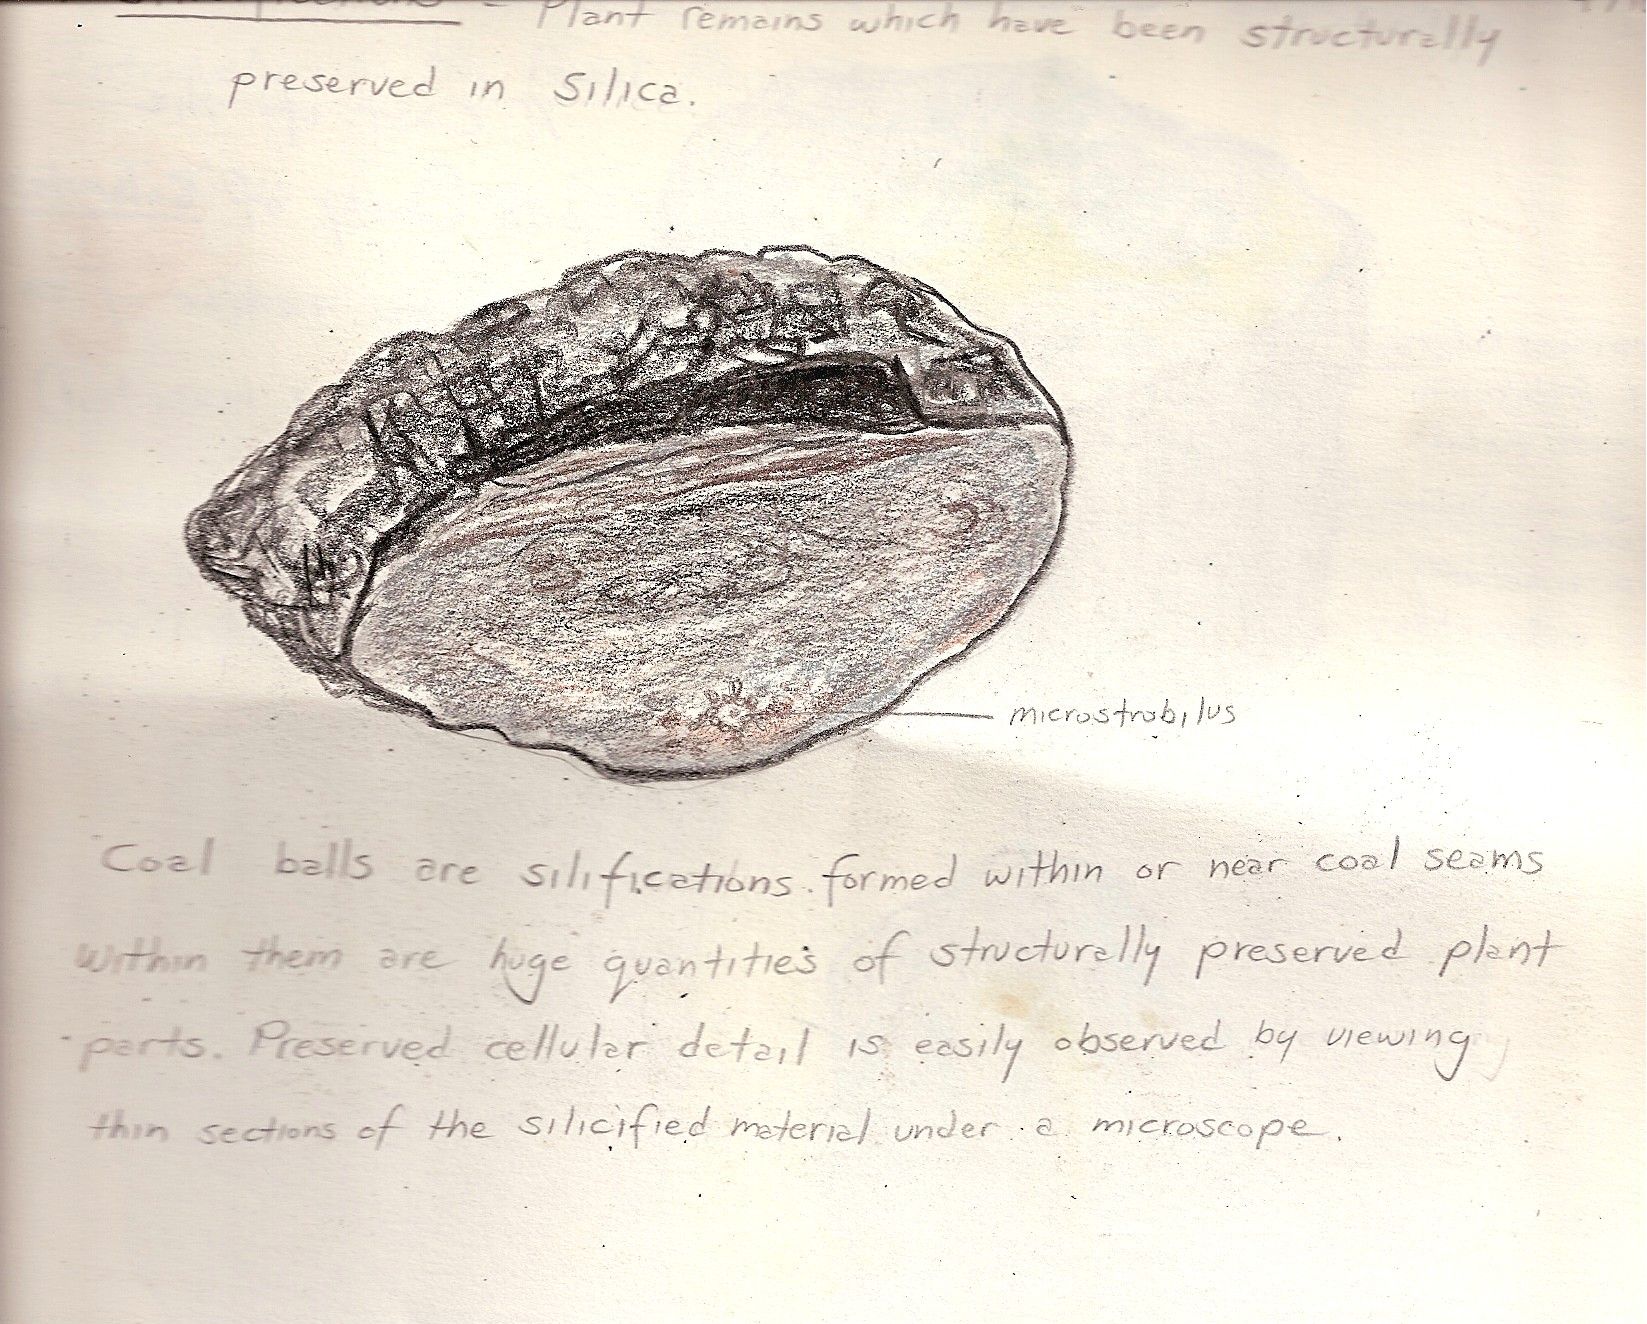 - Plant remains which have been structurally
preserved in Silica.
microstrobilus
Coal balls are silifications formed within or near coal seams
Within them are huge quantities of structurally preserved plant
parts. Preserved cellular detail is easily observed by viewing
thin sections of the silicified material under a microscope.